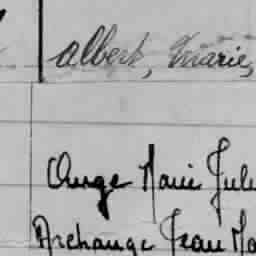 Albert, Marie,
Ange Marie Jule
Archange Jean Ma